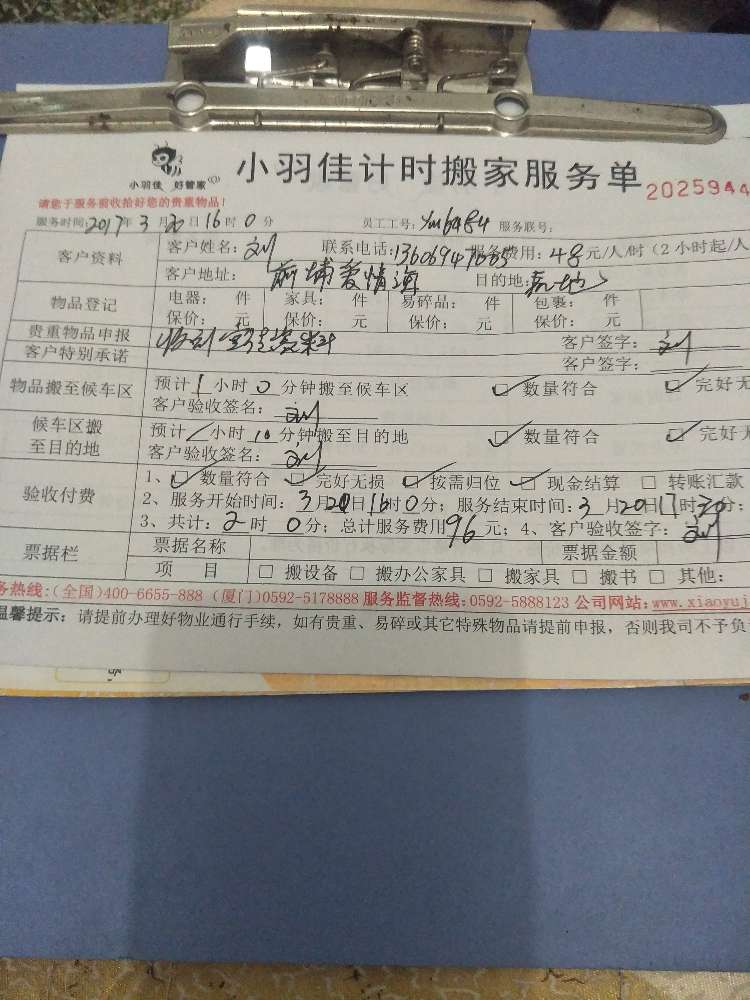 小羽佳 好管家
小羽佳计时搬家服务单 2025944
请您于服务前收拾好您的贵重物品!
服务时间:2017年3月20日16时0分 员工工号:Ym6484 服务联号:
客户资料 客户姓名:刘 联系电话: 服务费用:48元/人/时(2小时起/人
客户地址:前埔爱情海 目的地:
物品登记 电器: 件 家具: 件 易碎品: 件 包裹: 件
保价: 元 保价: 元 保价: 元 保价: 元
贵重物品申报 客户签字:刘
客户特别承诺 客户签字:
物品搬至候车区 预计1小时0分钟搬至候车区 数量符合 完好无
客户验收签名:刘
候车区搬至目的地 预计/小时10分钟搬至目的地 数量符合 完好无
客户验收签名:刘
验收付费 1、数量符合 完好无损 按需归位 现金结算 转账汇款
2、服务开始时间:3月20日16时0分;服务结束时间:3月20日17时30分;
3、共计:2时0分;总计服务费用96元;4、客户验收签字:刘
票据栏 票据名称 票据金额
项 目 搬设备 搬办公家具 搬家具 搬书 其他:
务热线:(全国)400-6655-888 (厦门)0592-5178888 服务监督热线:0592-5888123 公司网站:www.xiaoyuj
温馨提示:请提前办理好物业通行手续,如有贵重、易碎或其它特殊物品请提前申报,否则我司不予负